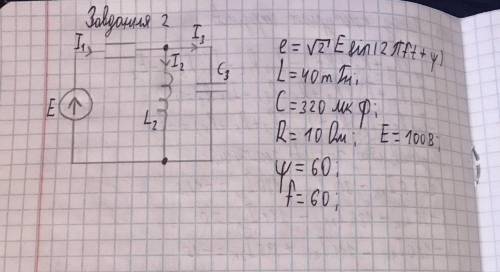 Завдання 2
I₁
I₂
I₃
C₃
E
L₂
e = √2 E sin(2πft + ψ)
L = 40 m Гн;
C = 320 мкФ;
R = 10 Ом; E = 100 В;
ψ = 60;
f = 60;